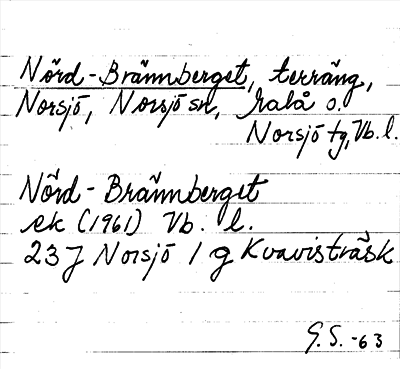 Nörd-Brännberget, terräng,
Norsjö, Norsjö sn, Malå o.
Norsjö tg, Vb. l.
Nörd-Brännberget
ek (1961) Vb. l.
23 J Norsjö 1 g Kvavisträsk
G. S. -63